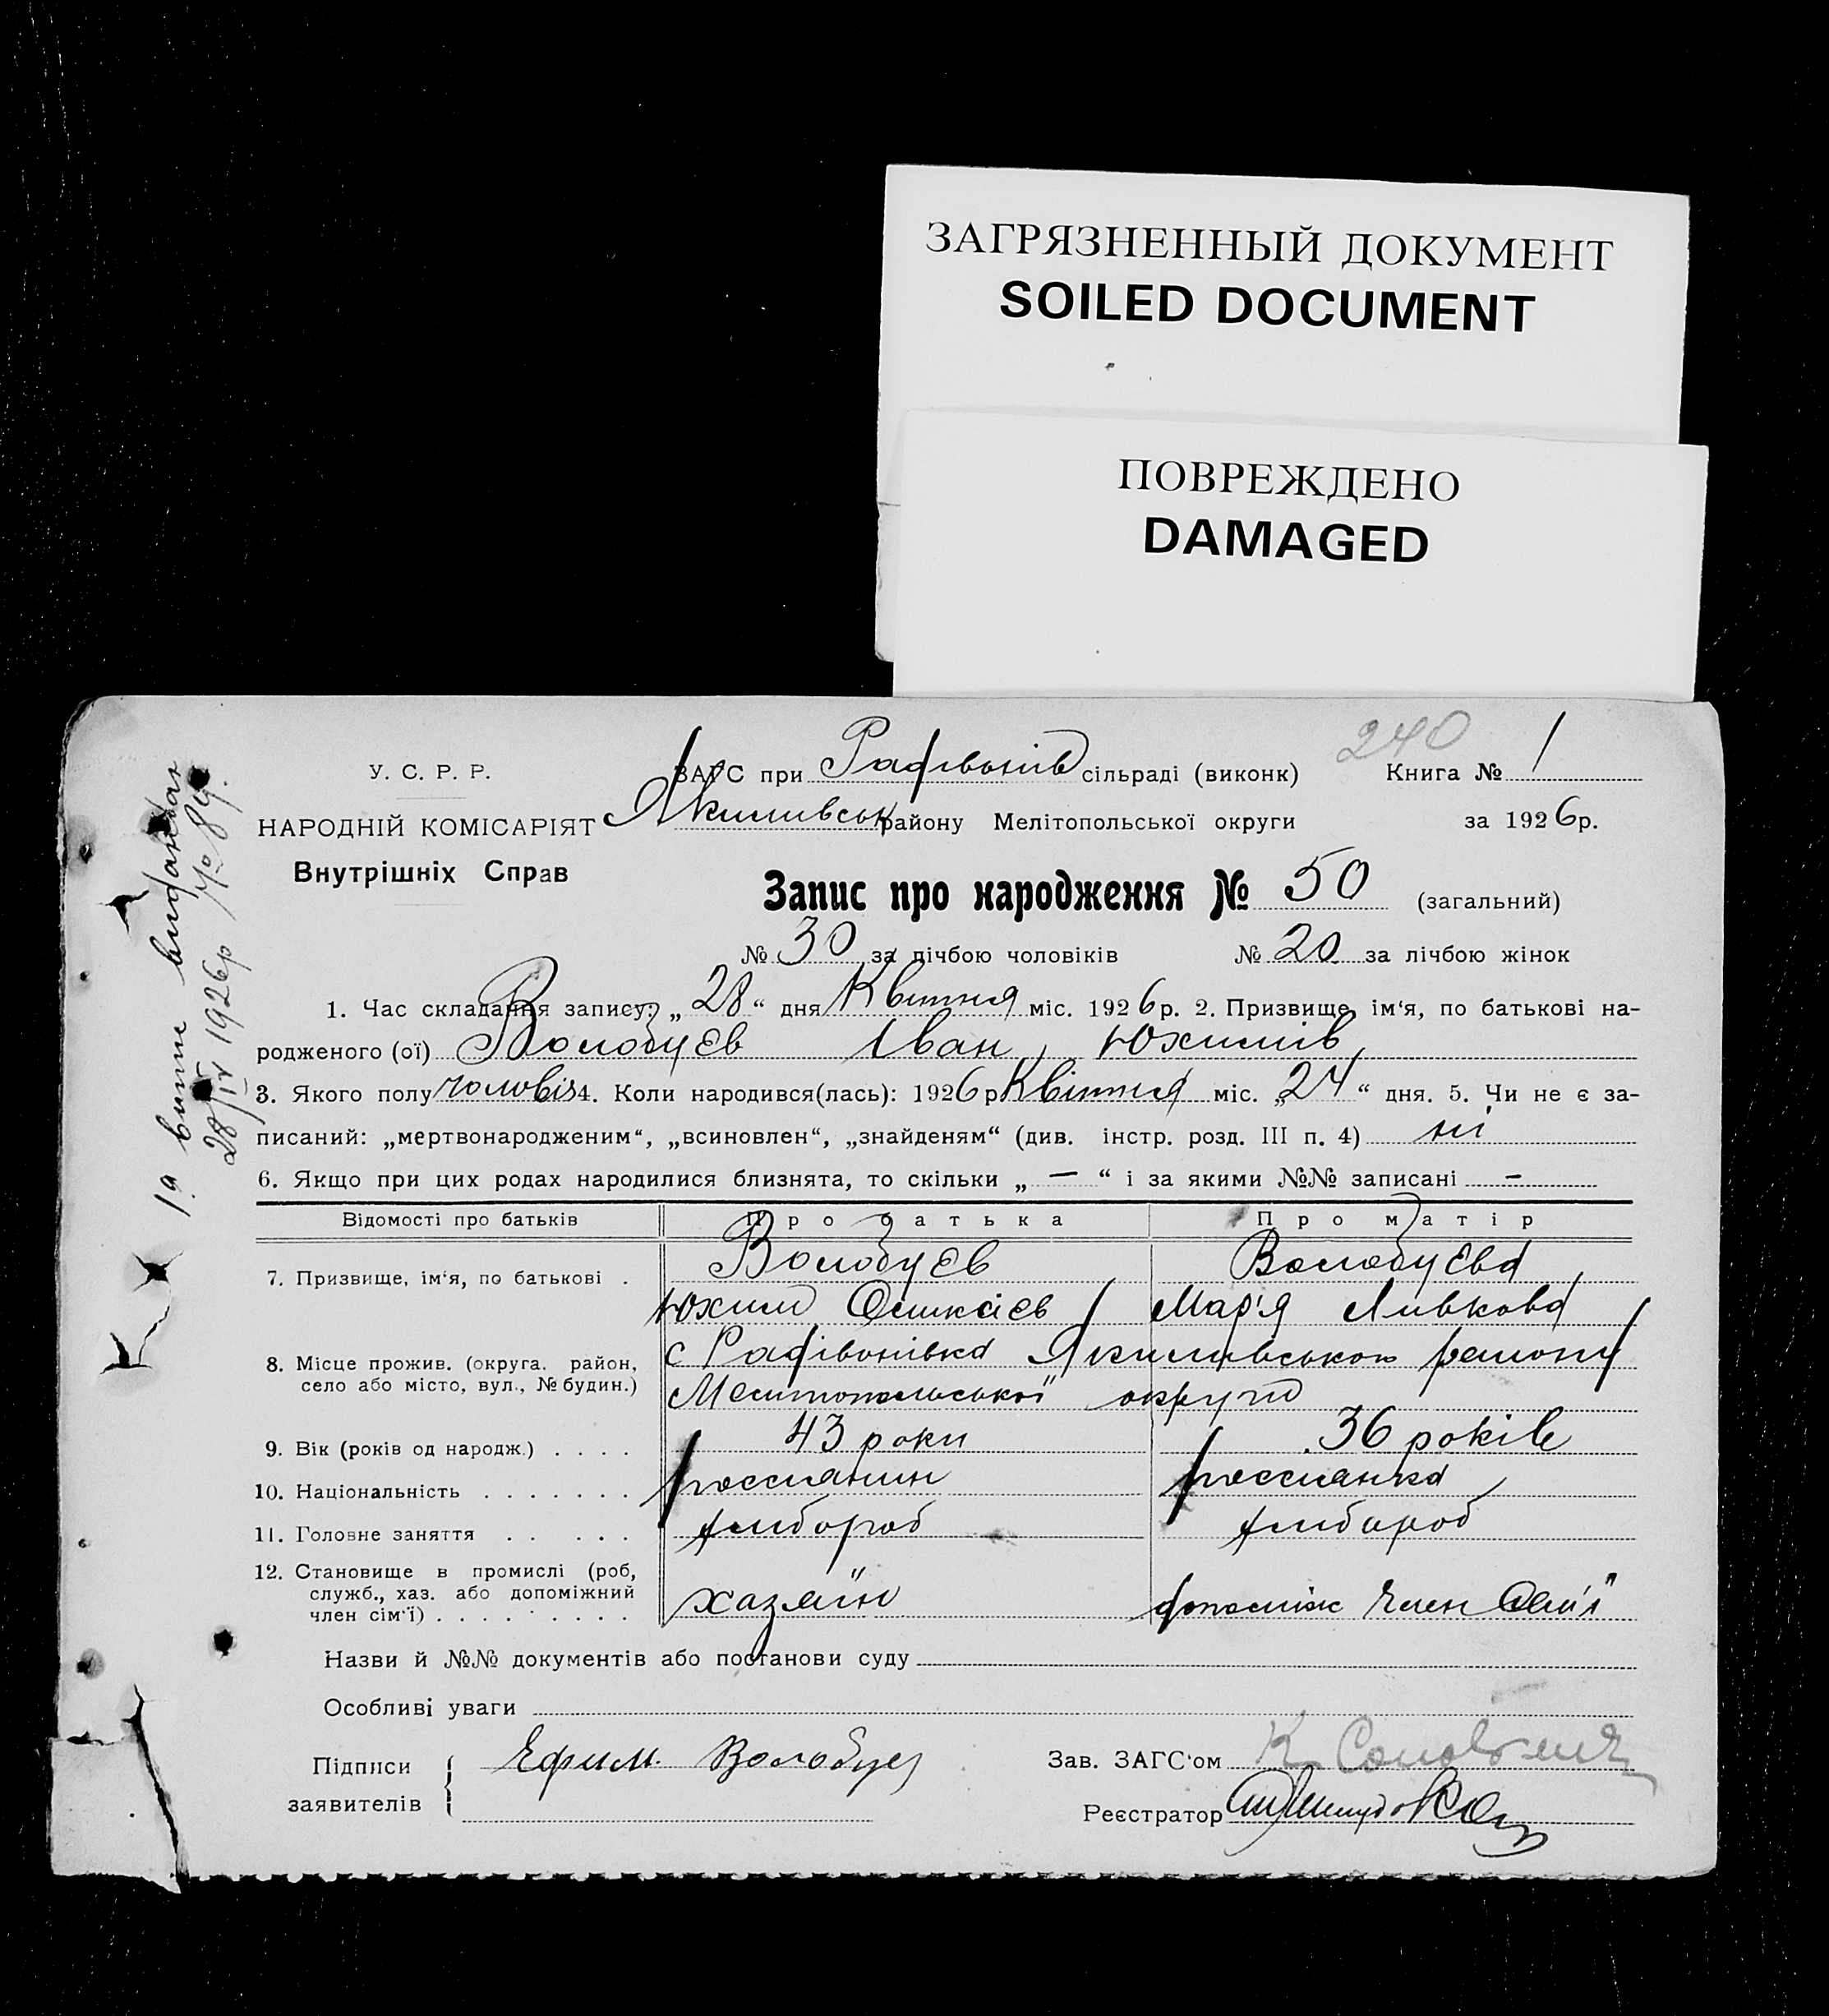 ЗАГРЯЗНЕННЫЙ ДОКУМЕНТ
SOILED DOCUMENT
ПОВРЕЖДЕНО
DAMAGED
240
У. С. Р. Р.
ЗАГС при Радівонів сільраді (виконк) Книга № 1
НАРОДНІЙ КОМІСАРІЯТ Якимівськ району Мелітопольської округи за 1926р.
Внутрішніх Справ
Запис про народження № 50 (загальний)
№ 30 за лічбою чоловіків № 20 за лічбою жінок
1. Час складання запису: „28“ дня Квітня міс. 1926р. 2. Призвище, ім‘я, по батькові на-
родженого (ої) Волобуєв Іван Юхимів
3. Якого полу чоловіч 4. Коли народився(лась): 1926р Квітня міс. „24“ дня. 5. Чи не є за-
писаний: „мертвонародженим“, „всиновлен“, „знайденям“ (див. інстр. розд. III п. 4) ні
6. Якщо при цих родах народилися близнята, то скільки „ — “ і за якими №№ записані -
Відомості про батьків Про батька Про матір
7. Призвище, ім‘я, по батькові . Волобуєв Волобуєва
Юхим Марія
8. Місце прожив. (округа. район, с Радівонівка Якимівського району
село або місто, вул., № будин.) Мелитопольської округи
9. Вік (років од народж.) . . . . 43 роки 36 років
10. Національність . . . . . . . россиянин россиянка
11. Головне заняття . . . . . хлібороб хлібороб
12. Становище в промислі (роб,
служб., хаз. або допоміжний хазяїн допоміж член сім'ї
член сім‘ї) . . . . . . . . .
Назви й №№ документів або постанови суду
Особливі уваги
Підписи Ефим Волобуев Зав. ЗАГС‘ом
заявителів Реєстратор
28/IV 1926р № 84.